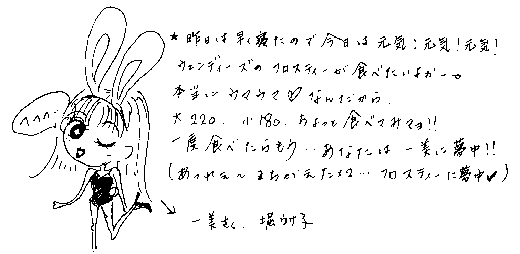 ★昨日は早く寝たので今日は元気!元気!元気!
ウェンディーズのフロスティーが食べたいよォーー。
本当にウマウマ♡なんだから。
大220、小180、ちょっと食べてみてョ!!
一度食べたらもう…あなたは一美に夢中!!
(あっれぇ〜まちがえたヌヌ…フロスティーに夢中✓)
へへへ
一美 堀